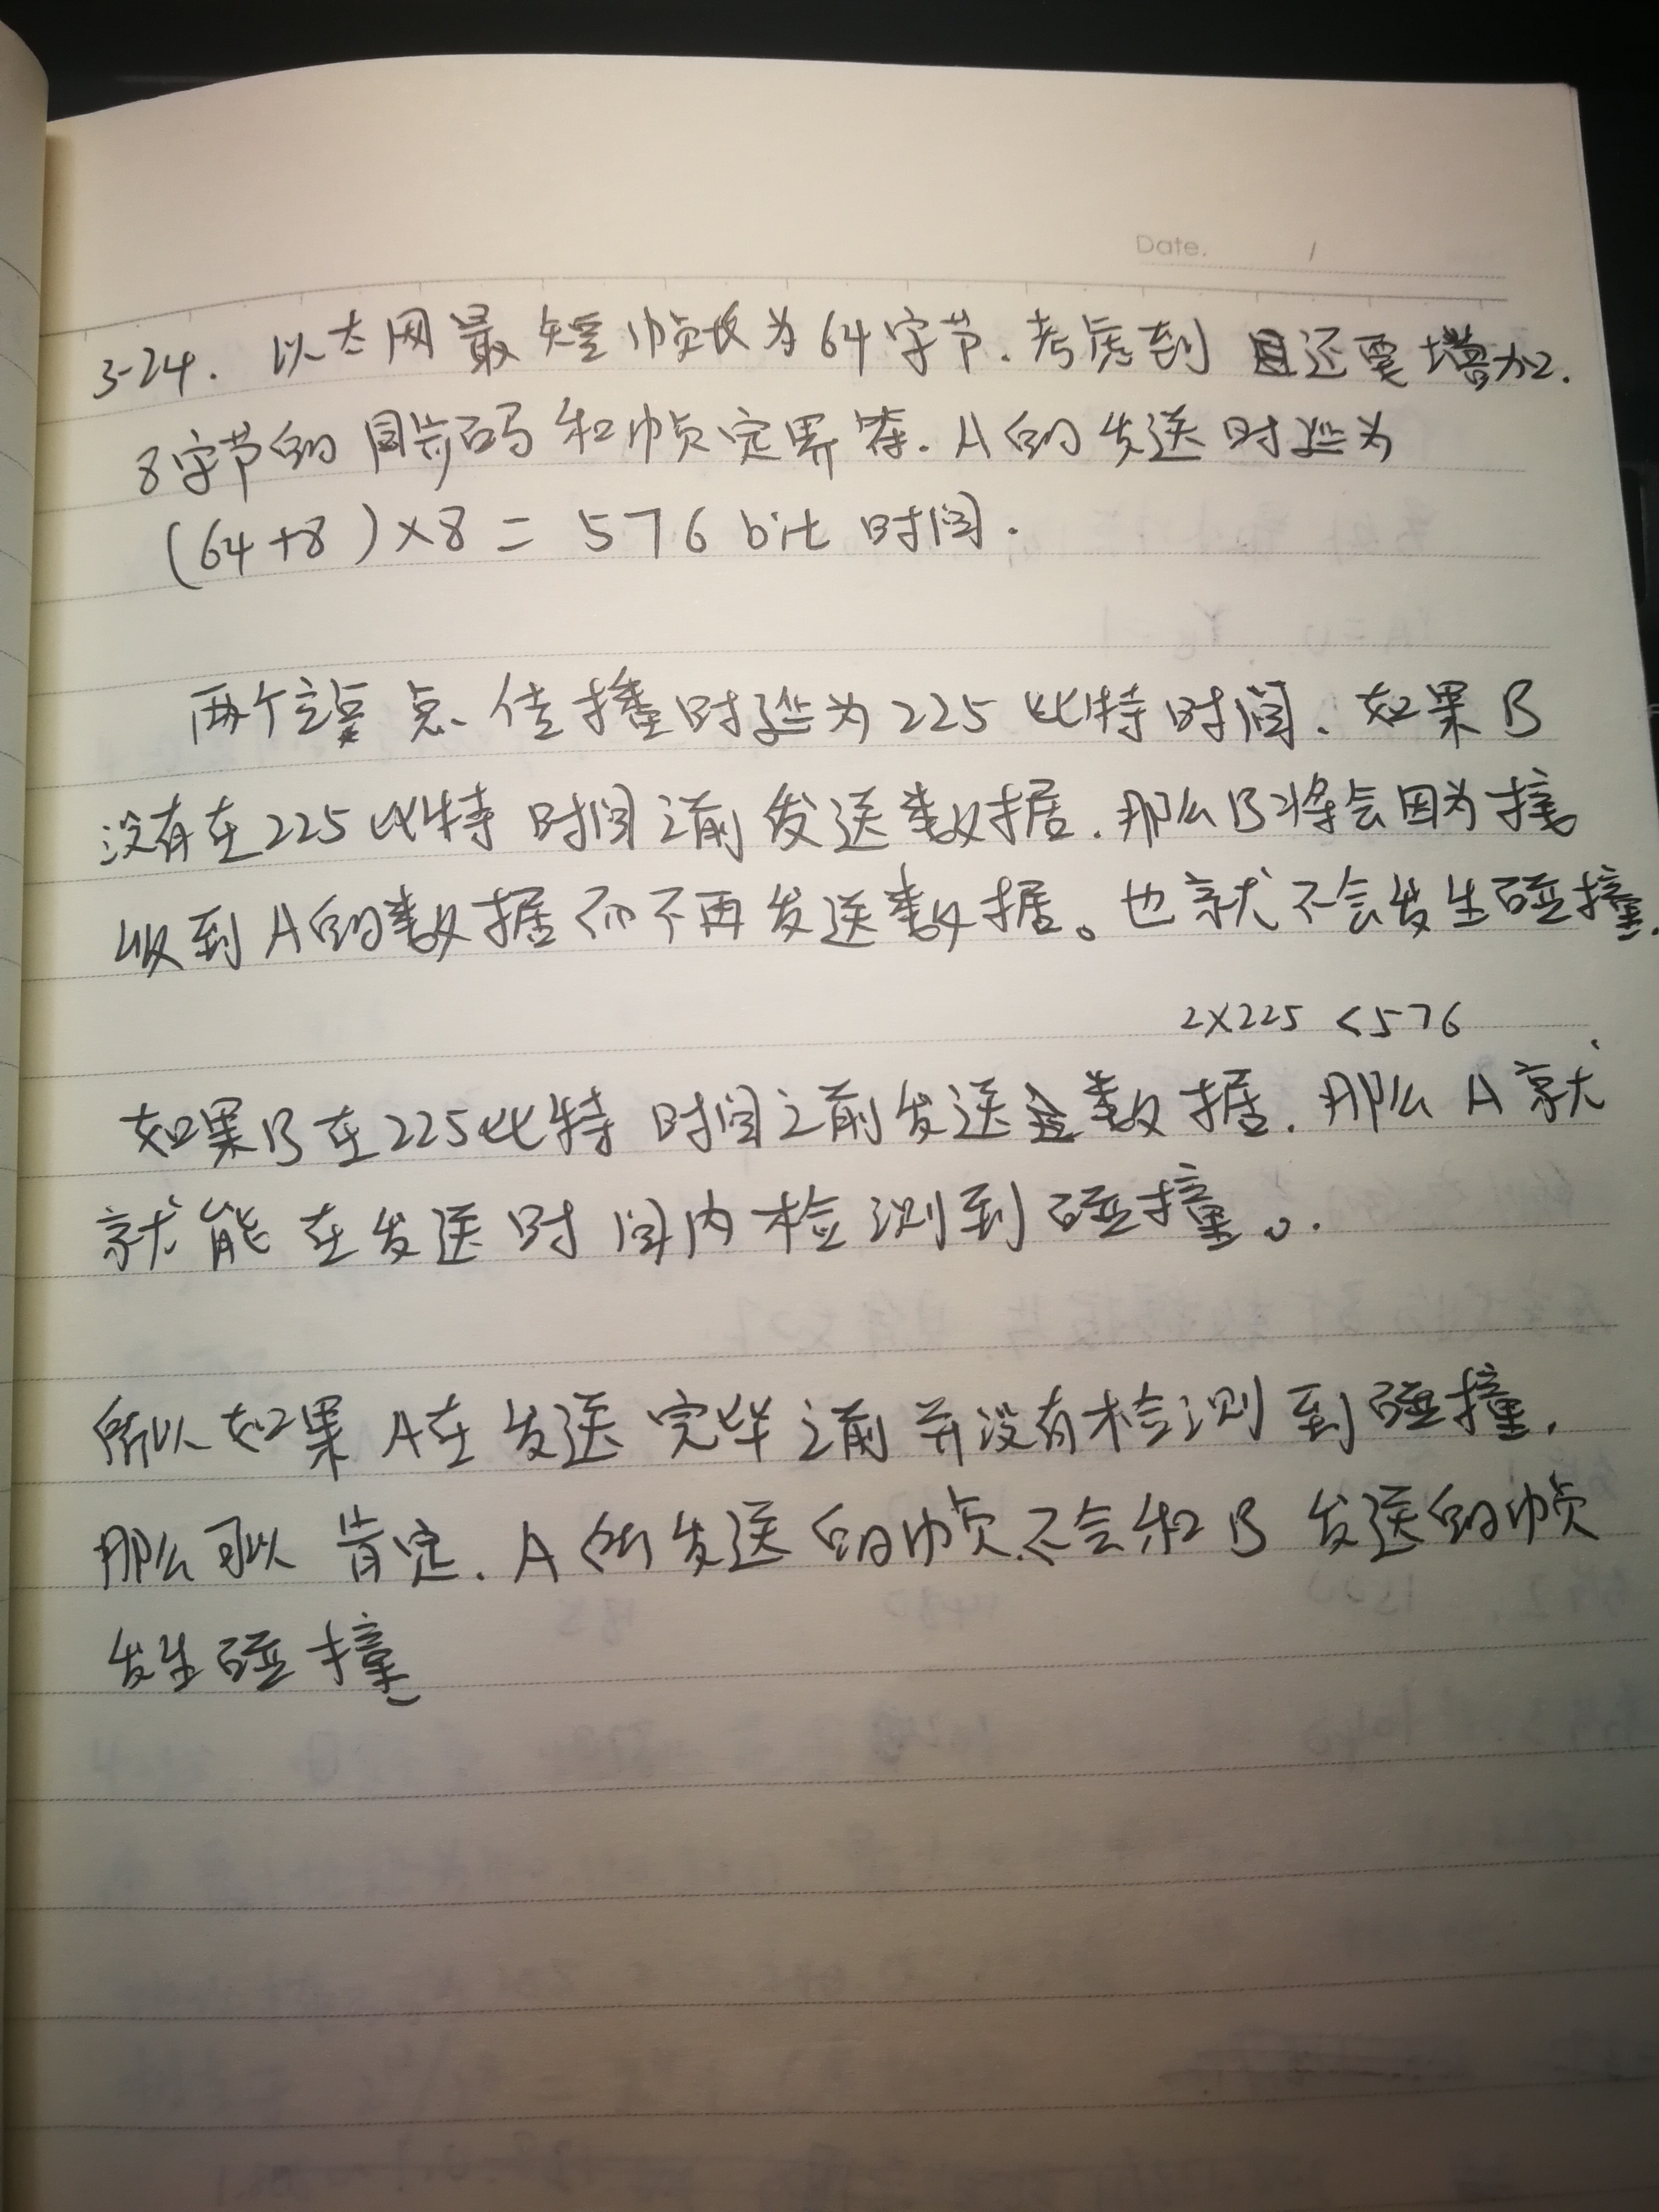 Date. /
3-24. 以太网最短帧长为64字节.考虑到 且还要增加.
8字节的同步码和帧定界符.A的发送时延为
(64+8)×8 = 576 bit 时间.
两个站点、传播时延为225比特时间.如果B
没有在225比特时间之前发送数据.那么B将会因为接
收到A的数据而不再发送数据。也就不会发生碰撞.
2×225 <576
如果B在225比特时间之前发送数据.那么A就
就能在发送时间内检测到碰撞。.
所以如果A在发送完毕之前并没有检测到碰撞.
那么可以肯定.A所发送的帧不会和B发送的帧
发生碰撞